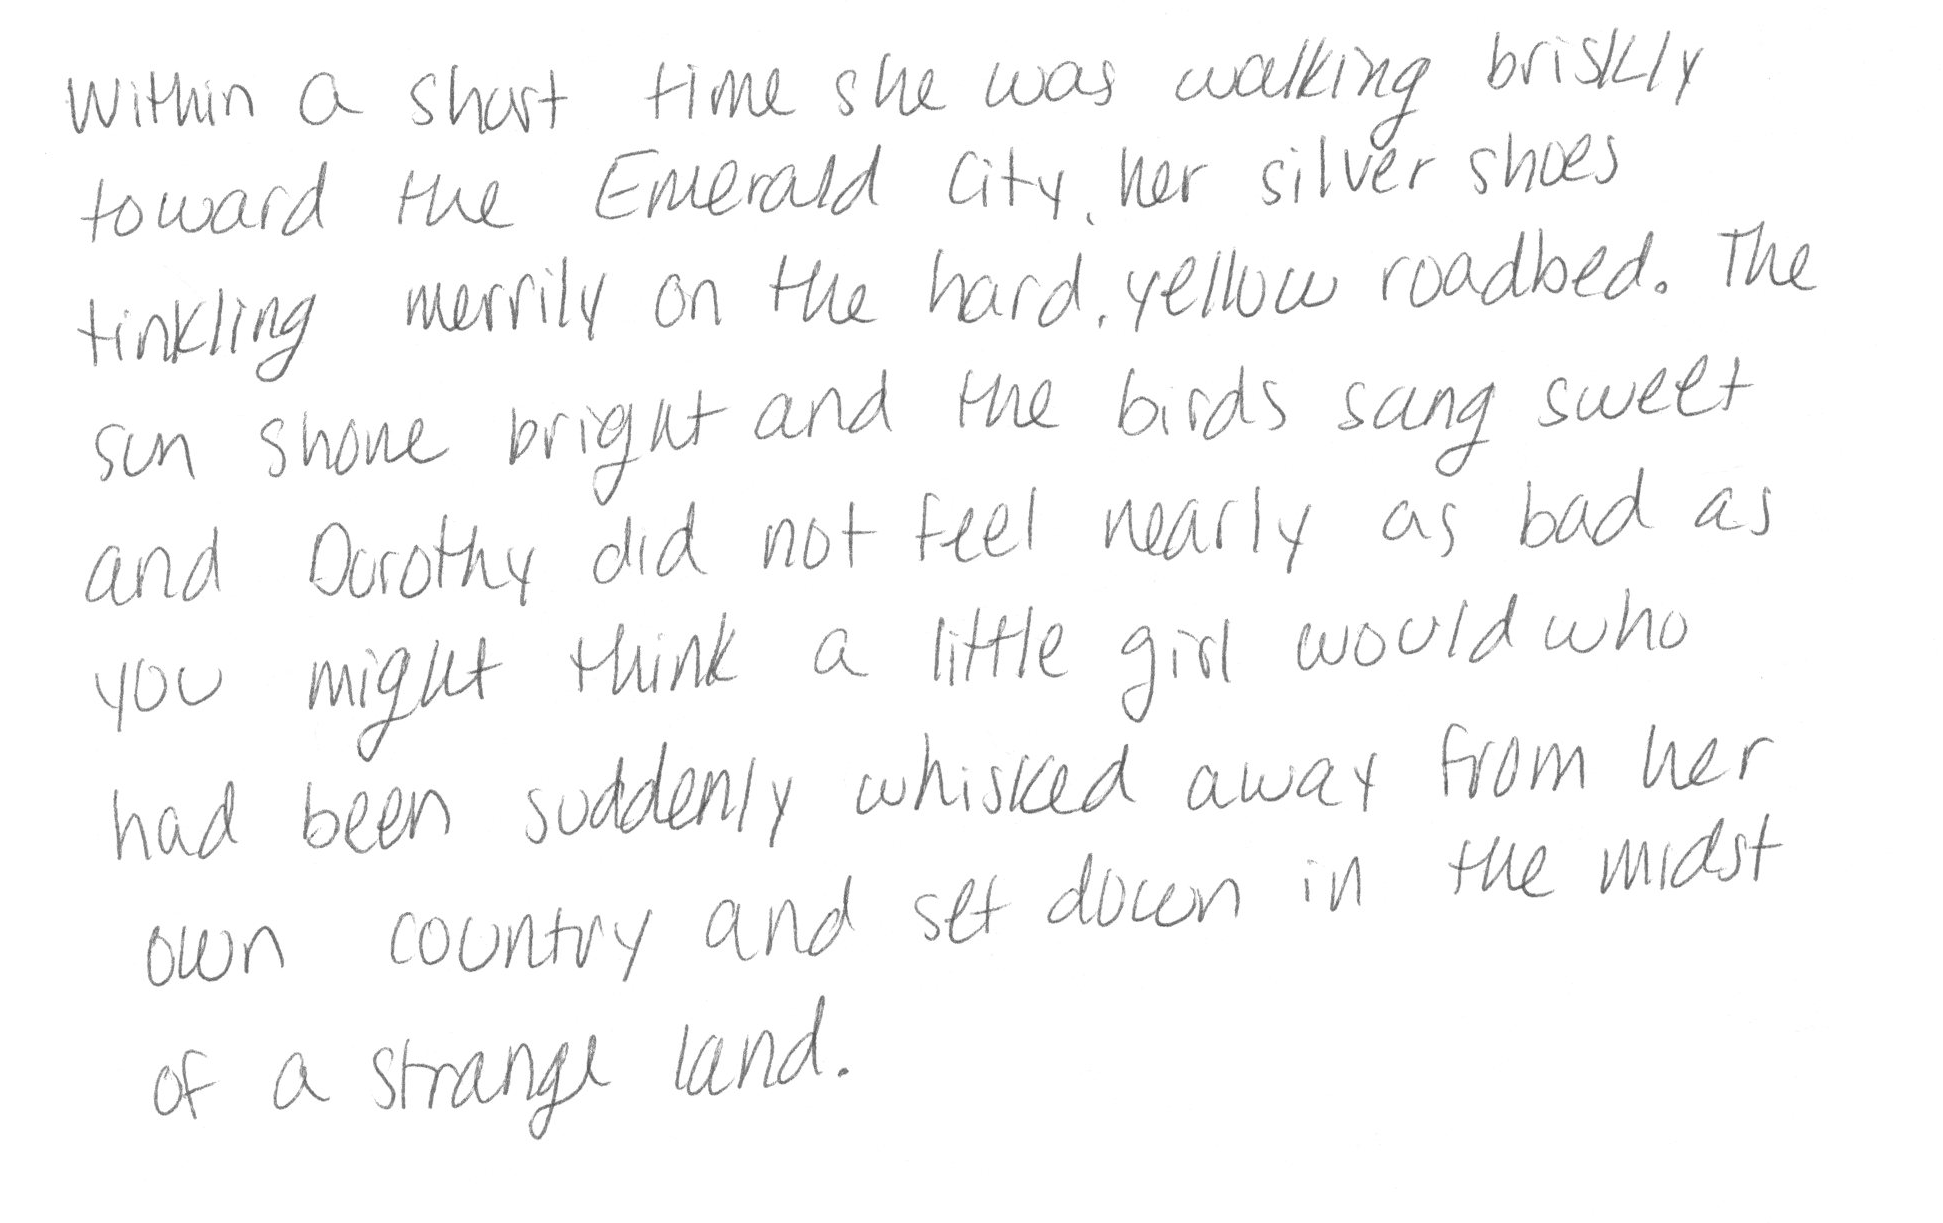 Within a short time she was walking briskly
toward the Emerald City, her silver shoes
tinkling merrily on the hard, yellow roadbed. The
sun shone bright and the birds sang sweet
and Dorothy did not feel nearly as bad as
you might think a little girl would who
had been suddenly whisked away from her
own country and set down in the midst
of a strange land.